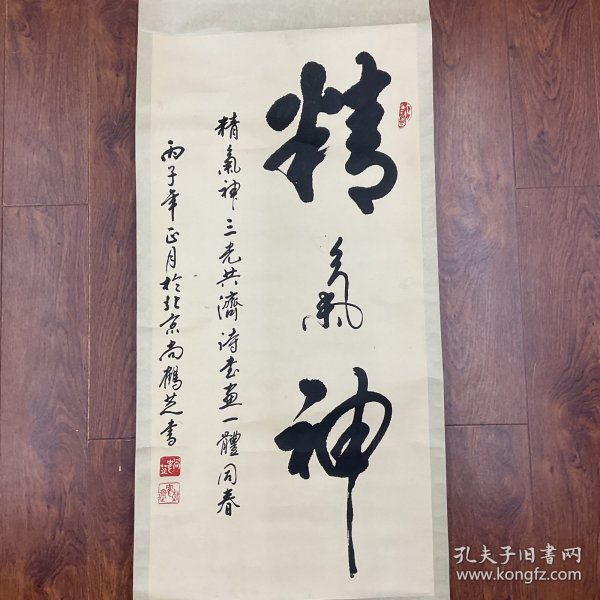 精氣神
精氣神三光共濟诗书画一體同春
丙子年正月於北京尚鶴芝書
孔夫子旧書网
www.kongfz.com